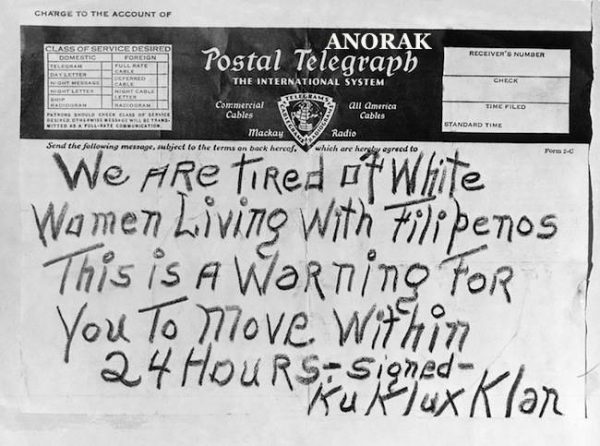 CHARGE TO THE ACCOUNT OF
CLASS OF SERVICE DESIRED
DOMESTIC FOREIGN
TELEGRAM FULL RATE CABLE
DAY LETTER DEFERRED CABLE
NIGHT MESSAGE NIGHT CABLE LETTER
NIGHT LETTER
SHIP RADIOGRAM RADIOGRAM
PATRONS SHOULD CHECK CLASS OF SERVICE
DESIRED OTHERWISE MESSAGE WILL BE TRANS-
MITTED AS A FULL-RATE COMMUNICATION
ANORAK
Postal Telegraph
THE INTERNATIONAL SYSTEM
Commercial Cables
All America Cables
Mackay Radio
RECEIVER'S NUMBER
CHECK
TIME FILED
STANDARD TIME
Send the following message, subject to the terms on back hereof, which are hereby agreed to
Form 2-C
We ARe TIRed of White
Women Living With Filipenos
This is A WaRning FoR
You To Move. Within
24 HouRS-Signed-
Ku Klux Klan